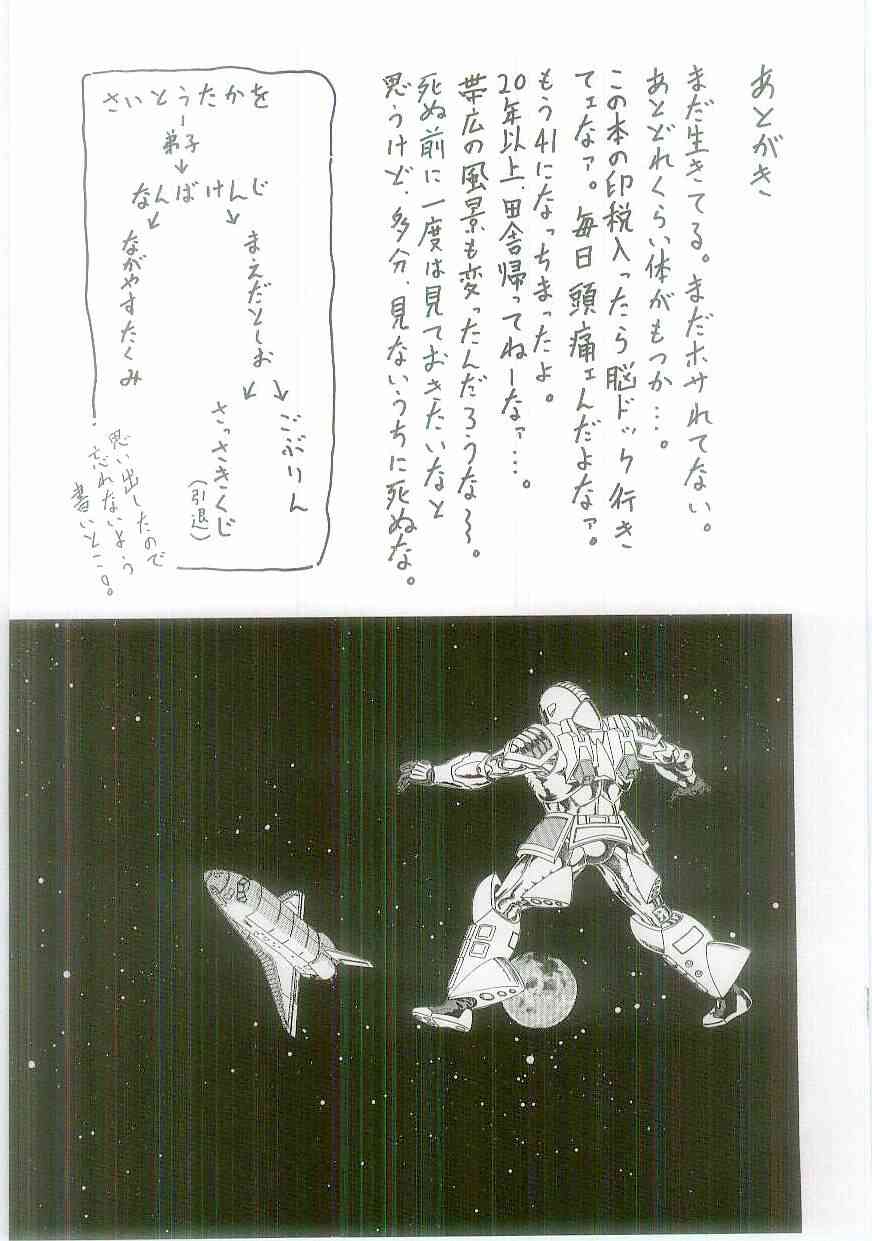 あとがき
まだ生きてる。まだホサれてない。
あとどれくらい体がもつか…。
この本の印税入ったら脳ドック行き
てェなァ。毎日頭痛ェんだよなァ。
もう41になっちまったよ。
20年以上、田舎帰ってねーなァ…。
帯広の風景も変ったんだろうな〜〜。
死ぬ前に一度は見ておきたいなと
思うけど、多分、見ないうちに死ぬな。
さいとうたかを
弟子
なんばけんじ
まえだとしお
ながやすたくみ
ごぶりん
さっさきくじ
（引退）
思い出したので
忘れないよう
書いとこ。